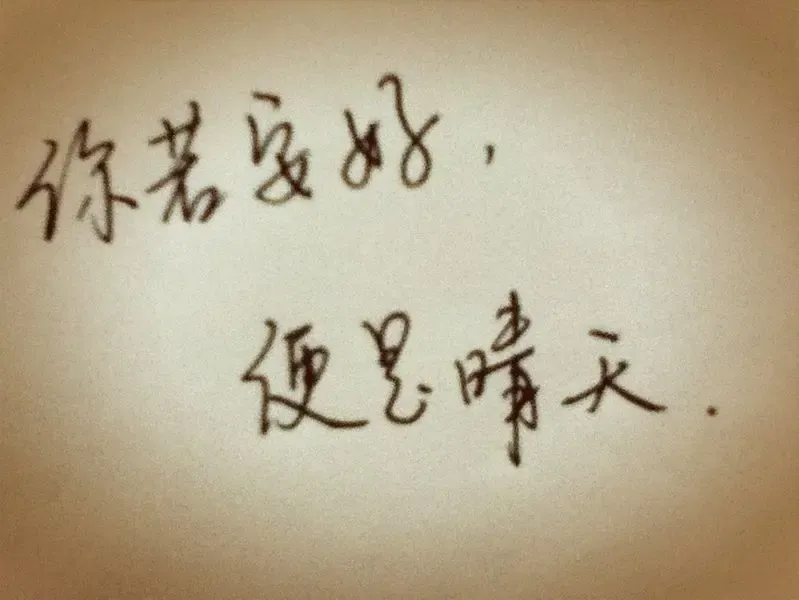 你若安好,
便是晴天.